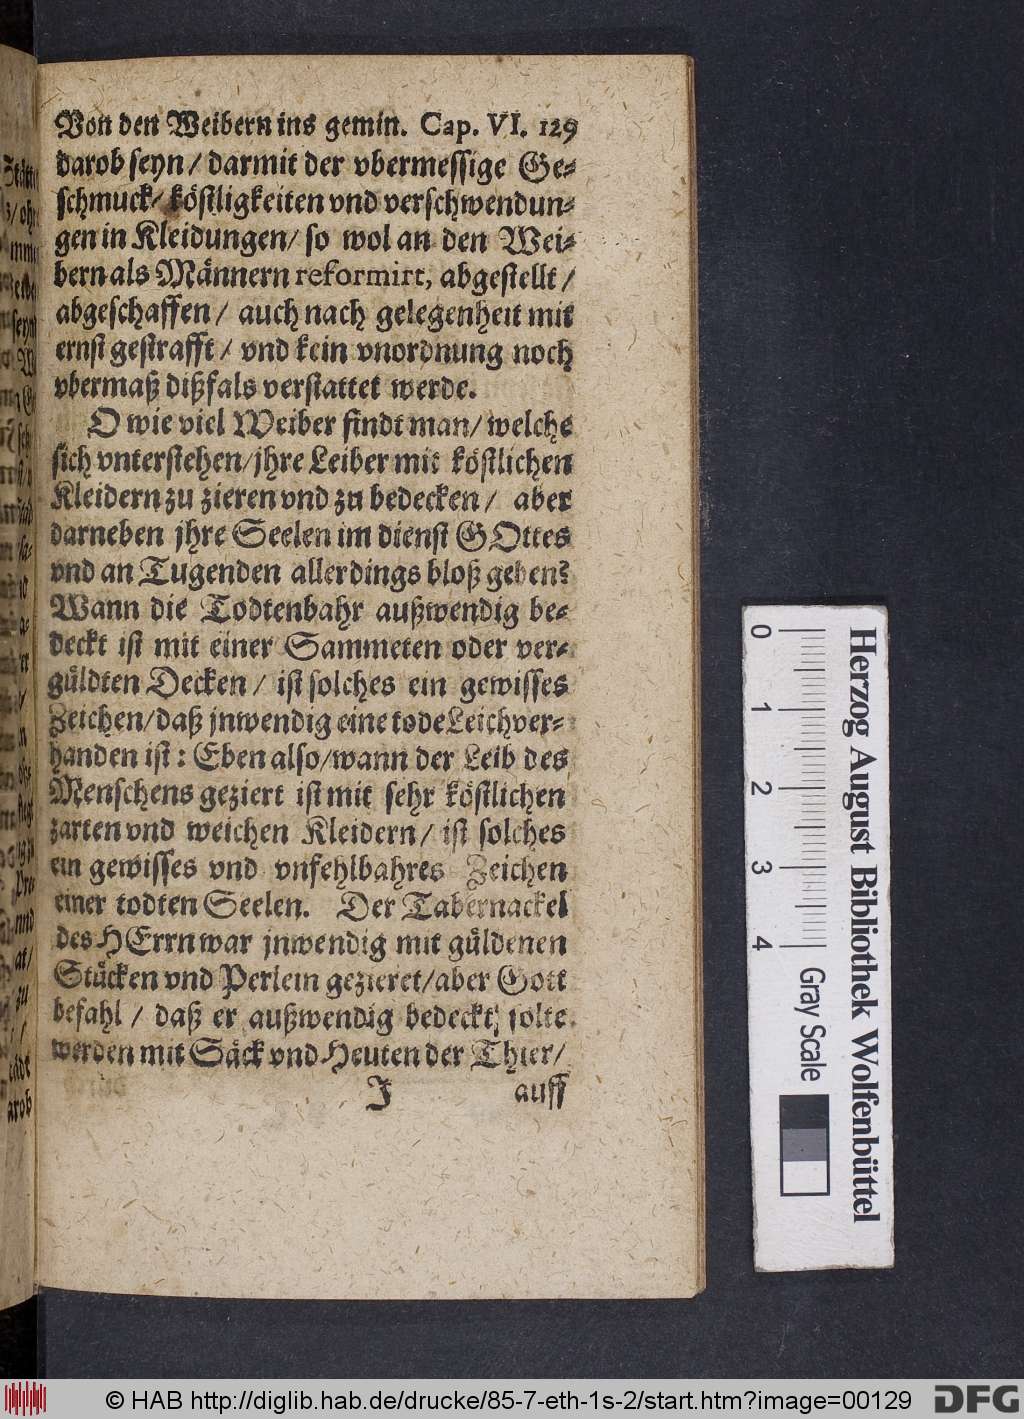 Von den Weibern ins gemin. Cap. VI. 129
darob seyn / darmit der vbermessige Ge-
schmuck / köstligkeiten vnd verschwendun-
gen in Kleidungen / so wol an den Wei-
bern als Männern reformirt, abgestellt /
abgeschaffen / auch nach gelegenheit mit
ernst gestrafft / vnd kein vnordnung noch
vbermaß dißfals verstattet werde.
O wie viel Weiber findt man / welche
sich vnterstehen / jhre Leiber mit köstlichen
Kleidern zu zieren vnd zu bedecken / aber
darneben jhre Seelen im dienst GOttes
vnd an Tugenden allerdings bloß gehen?
Wann die Todtenbahr außwendig be-
deckt ist mit einer Sammeten oder ver-
güldten Decken / ist solches ein gewisses
Zeichen / daß jnwendig eine tode Leich ver-
handen ist : Eben also / wann der Leib des
Menschens geziert ist mit sehr köstlichen
zarten vnd weichen Kleidern / ist solches
ein gewisses vnd vnfehlbahres Zeichen
einer todten Seelen. Der Tabernackel
des HErrn war jnwendig mit güldenen
Stücken vnd Perlein gezieret / aber Gott
befahl / daß er außwendig bedeckt solte
werden mit Säck vnd Heuten der Thier /
J auff
Herzog August Bibliothek Wolfenbüttel
0 1 2 3 4 Gray Scale
© HAB http://diglib.hab.de/drucke/85-7-eth-1s-2/start.htm?image=00129 DFG